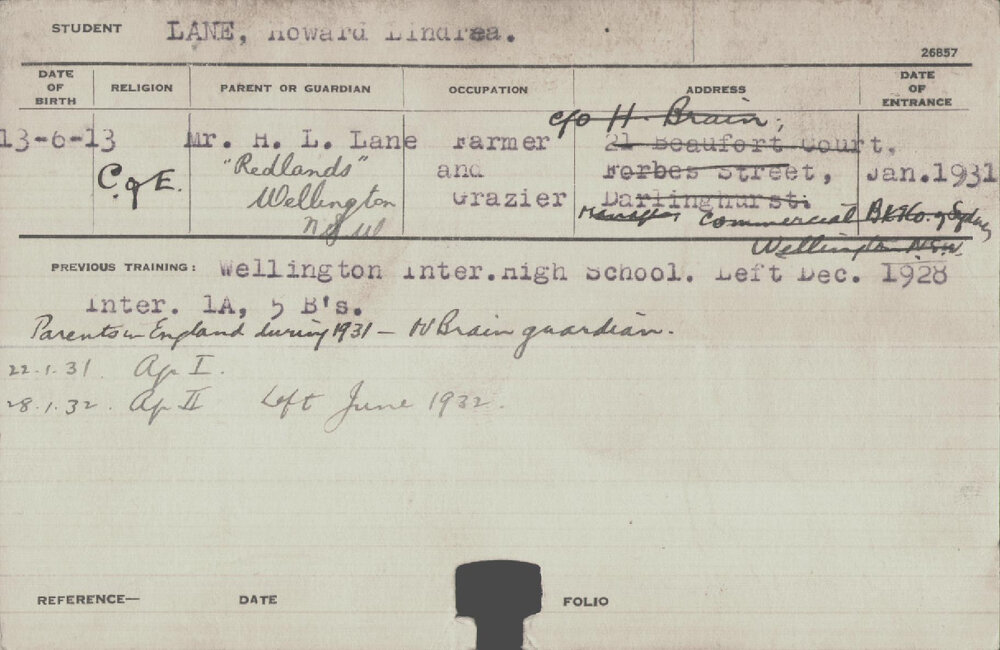 STUDENT LANE, Howard Lindrea.
26857
DATE OF BIRTH RELIGION PARENT OR GUARDIAN OCCUPATION ADDRESS DATE OF ENTRANCE
c/o H. Brain,
13-6-13 Mr. H. L. Lane Farmer 21 Beaufort Court,
C of E. "Redlands" and Forbes Street, Jan.1931
Wellington Grazier Darlinghurst.
N S W Manager Commercial Bk Co. of Sydney
Wellington N.S.W.
PREVIOUS TRAINING: Wellington Inter.High School. Left Dec. 1928
Inter. 1A, 5 B's.
Parents in England during 1931 - H Brain guardian.
22.1.31 Ap I.
28.1.32. Ap II Left June 1932.
REFERENCE— DATE FOLIO